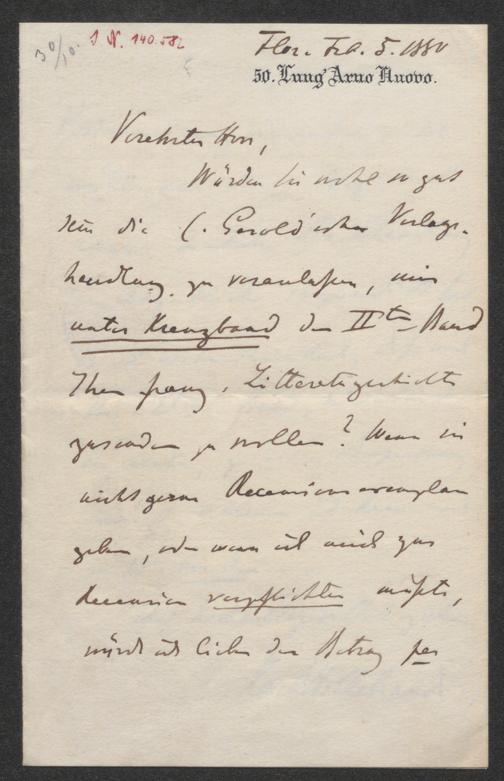 30/10. I N. 140.582
Flor. Feb. 5. 1880
50. Lung'Arno Nuovo.
Verehrter Herr,
Würden Sie wohl so gut
sein die C. Gerold'sche Verlags-
handlung zu veranlaßen, mir
unter Kreuzband den IIten Band
Ihrer franz. Litteraturgeschichte
zusenden zu wollen? Wenn sie
nicht gerne Recensionsexemplare
geben, oder wenn ich mich zur
Recension verpflichten müßte,
würde ich lieber den Betrag per